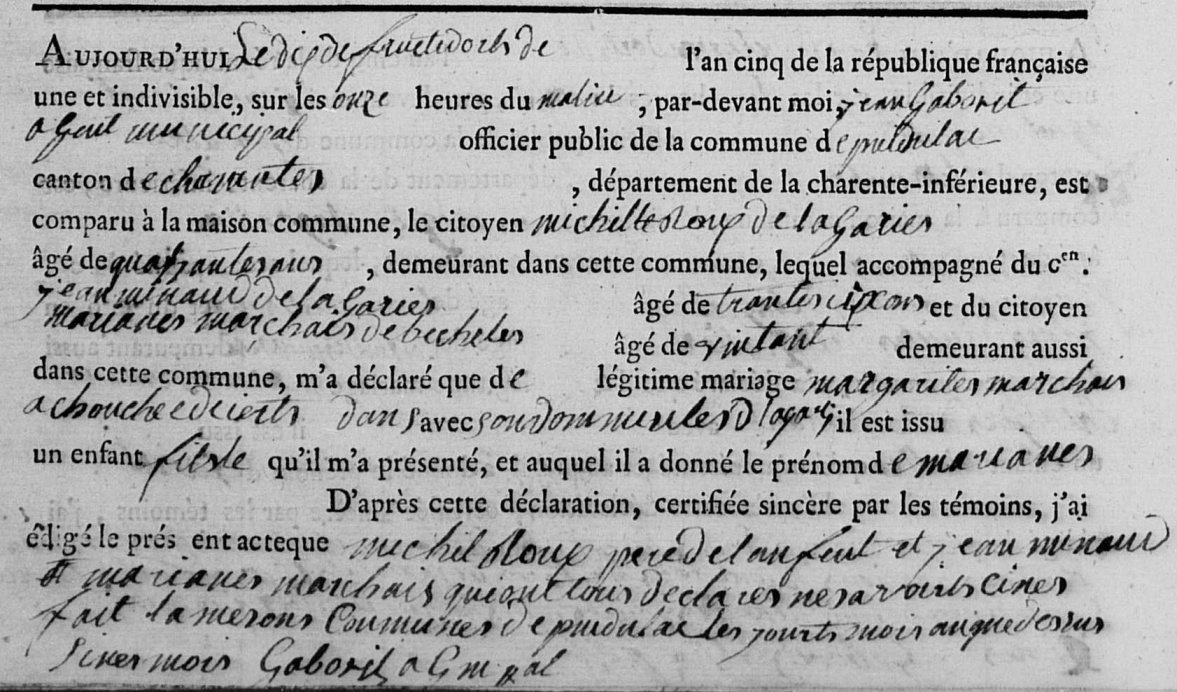 AUJOURD'HUI Le dis de fructidorts de l'an cinq de la république française
une et indivisible, sur les onze heures du matin, par-devant moi, jean Gaborit
agent municipal officier public de la commune de puidulac
canton de charantes, département de la charente-inférieure, est
comparu à la maison commune, le citoyen michel Roux de la Garies
âgé de quatrante ans, demeurant dans cette commune, lequel accompagné du c^en.
jean minaud de la Garies âgé de trante ans et du citoyen
marianes marchais de becheles âgé de demeurant aussi
dans cette commune, m'a déclaré que de légitime mariage margarites marchais
a chouchee dierts dans avec son dommiciles il est issu
un enfant fille qu'il m'a présenté, et auquel il a donné le prénom de marianes
D'après cette déclaration, certifiée sincère par les témoins, j'ai
rédigé le présent acte que michel Roux pere de lanfent et jean minaud
et marianes marchais qui ont tous declares ne savoirts cines
fait la mesons Coumunes de puidulac les jourts mois an que dessus
Sines mois Gaborit aGmpal